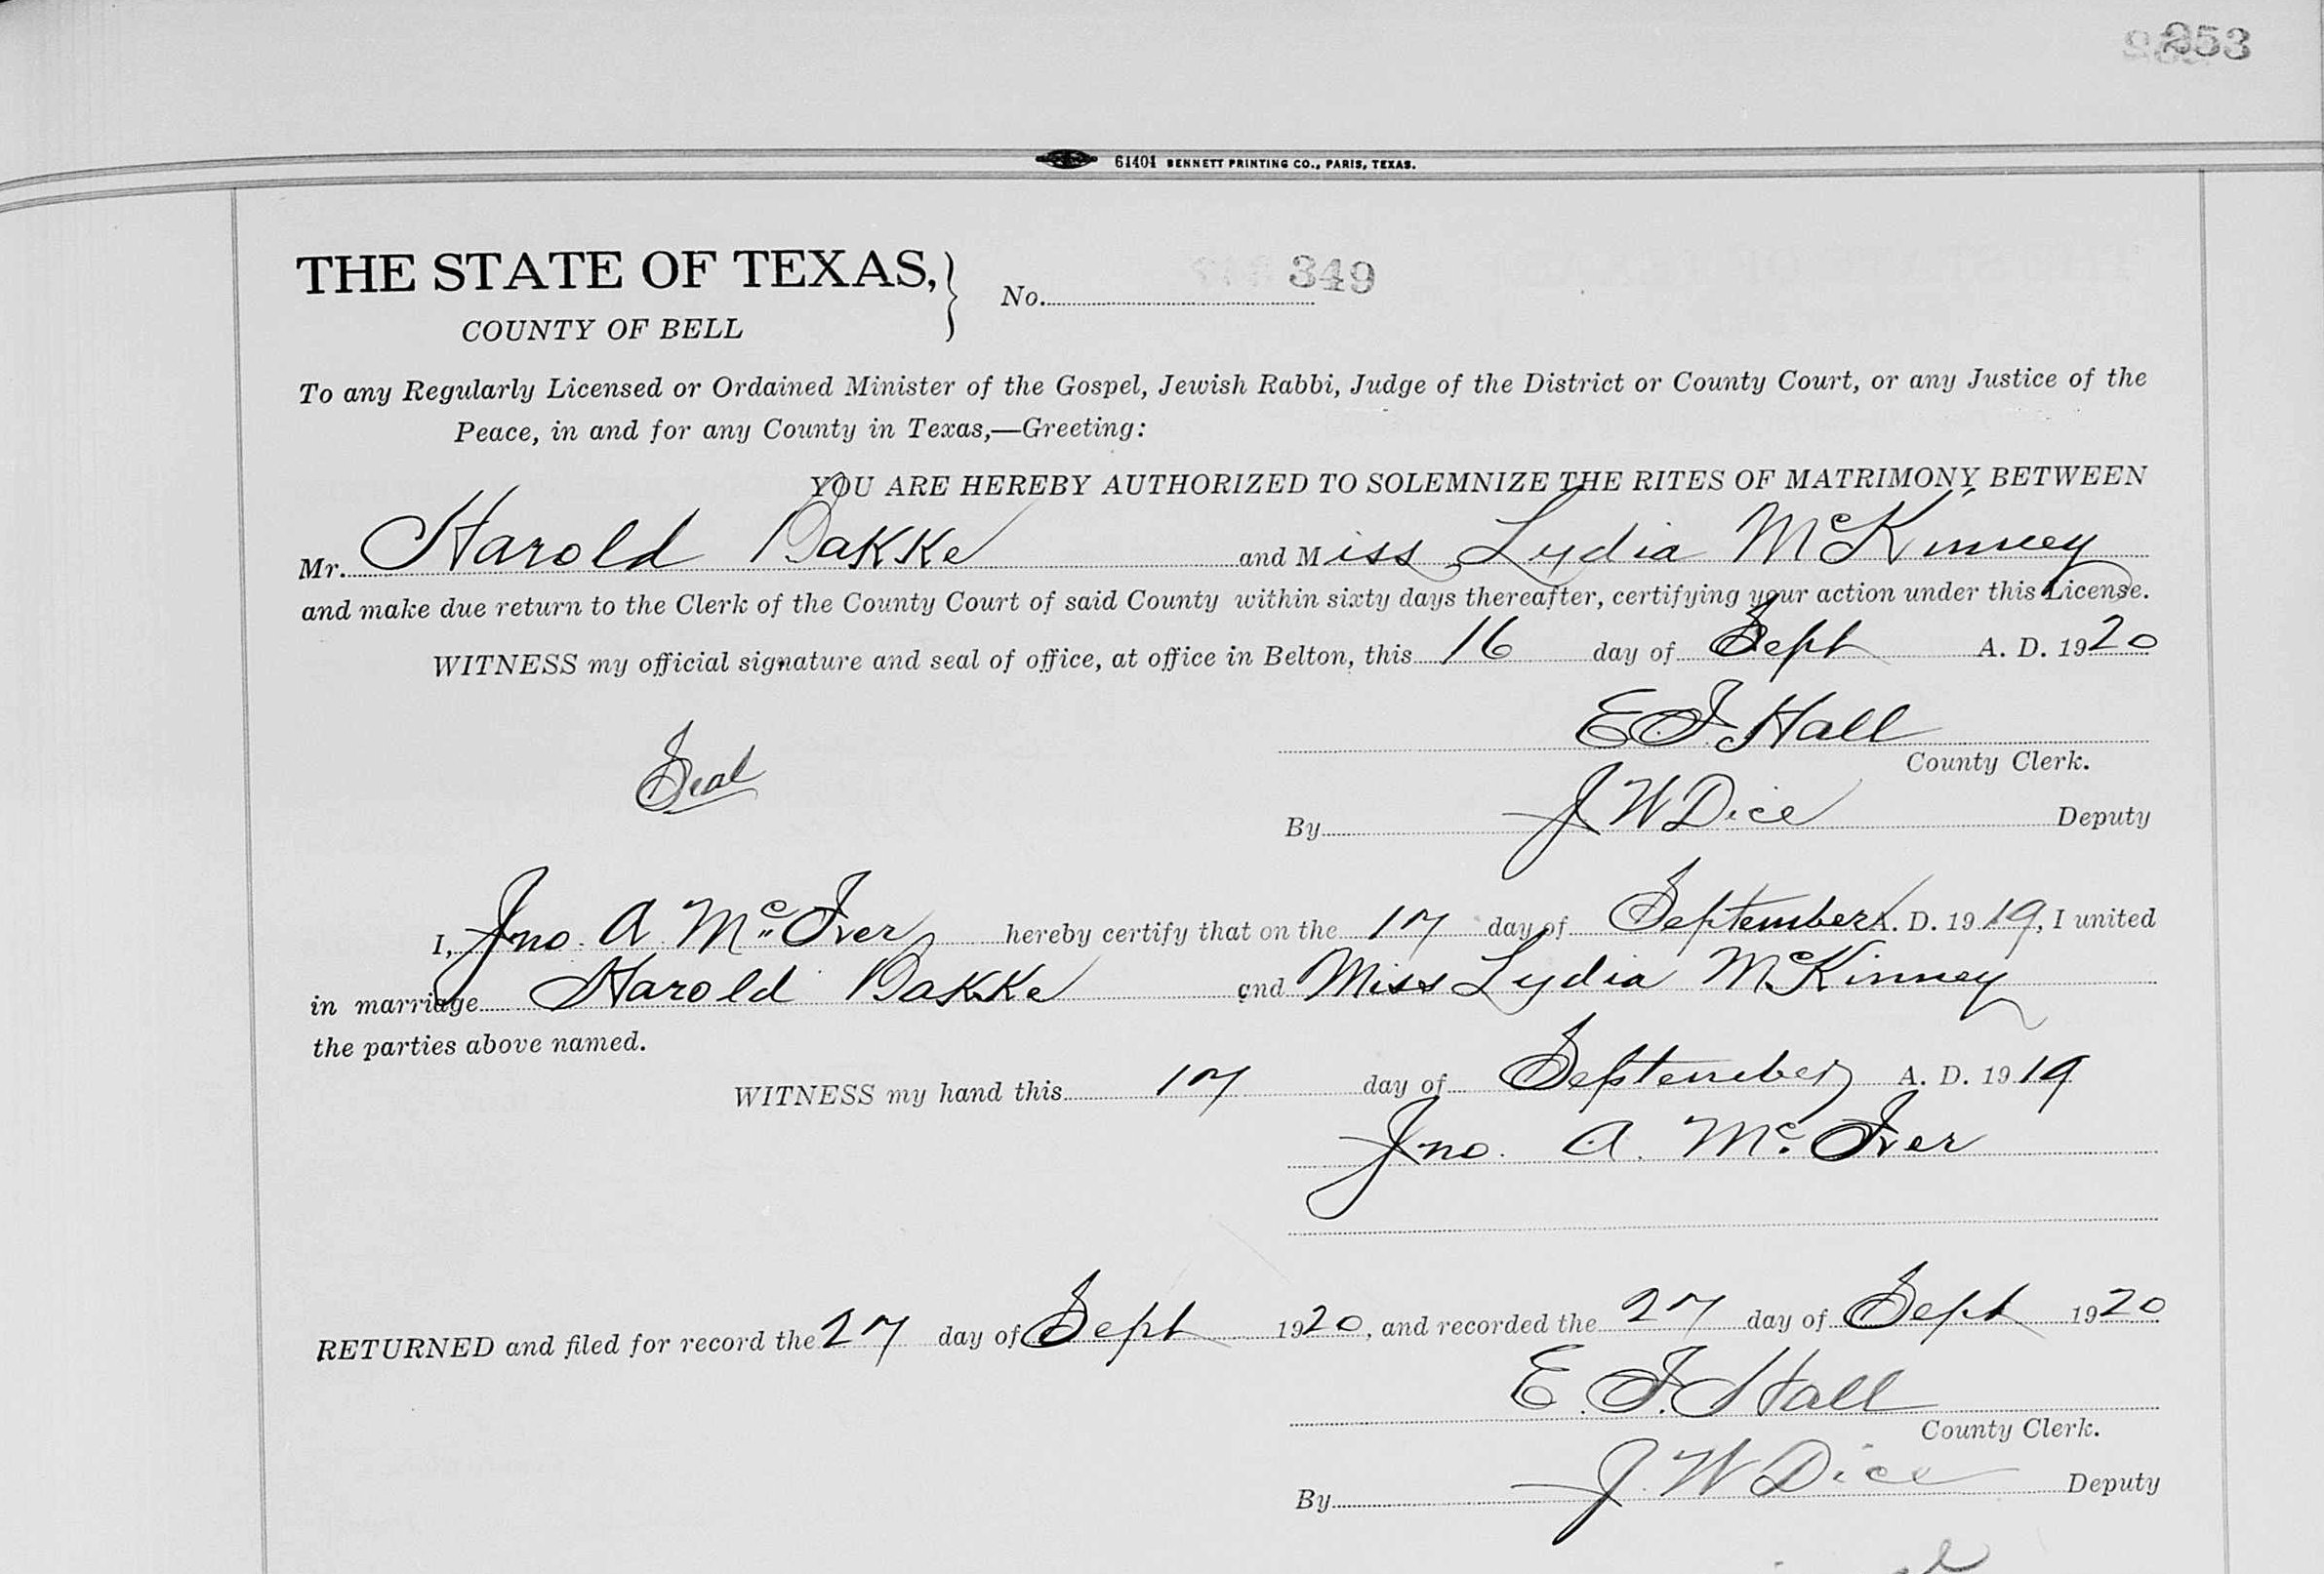 253
61401 BENNETT PRINTING CO., PARIS, TEXAS.
THE STATE OF TEXAS, No. 349
COUNTY OF BELL
To any Regularly Licensed or Ordained Minister of the Gospel, Jewish Rabbi, Judge of the District or County Court, or any Justice of the
Peace, in and for any County in Texas,—Greeting:
YOU ARE HEREBY AUTHORIZED TO SOLEMNIZE THE RITES OF MATRIMONY BETWEEN
Mr. Harold Bakke and Miss Lydia McKinney
and make due return to the Clerk of the County Court of said County within sixty days thereafter, certifying your action under this License.
WITNESS my official signature and seal of office, at office in Belton, this 16 day of Sept A. D. 1920
E F Hall
Seal County Clerk.
By J W Dice Deputy
I, Jno. A. McIver hereby certify that on the 17 day of September A. D. 19 19, I united
in marriage Harold Bakke and Miss Lydia McKinney
the parties above named.
WITNESS my hand this 17 day of September A. D. 19 19
Jno. A. McIver
RETURNED and filed for record the 27 day of Sept 1920, and recorded the 27 day of Sept 1920
E. F. Hall
County Clerk.
By J. W Dice Deputy